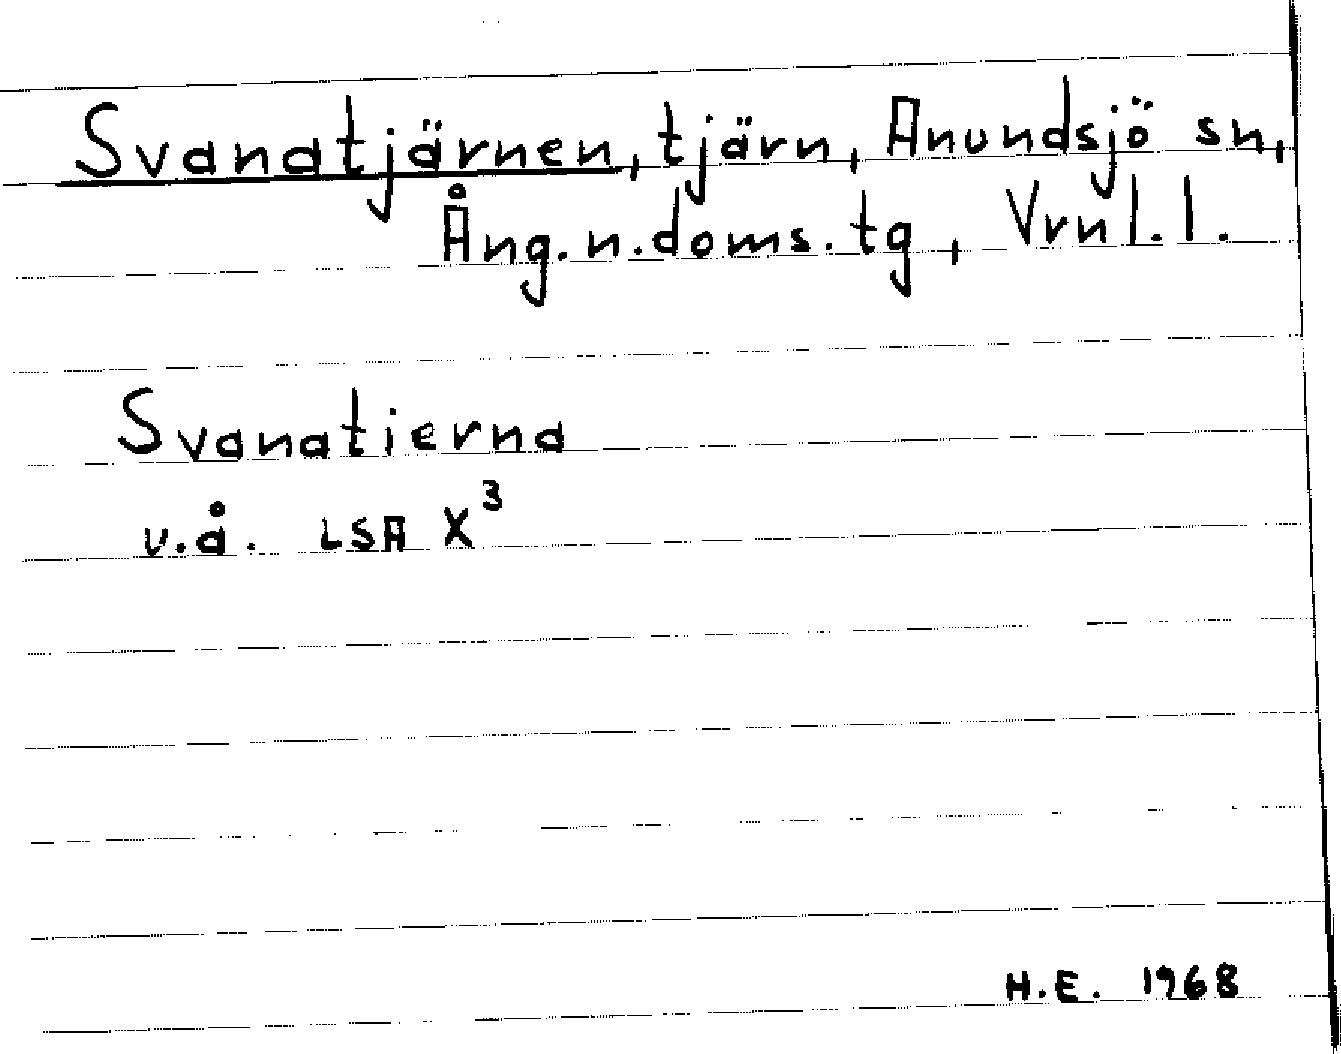 Svanatjärnen, tjärn, Anundsjö sn,
Ång.n.doms.tg, Vrnl.l.
Svanatierna
v.å. LSA X³
H.E. 1968